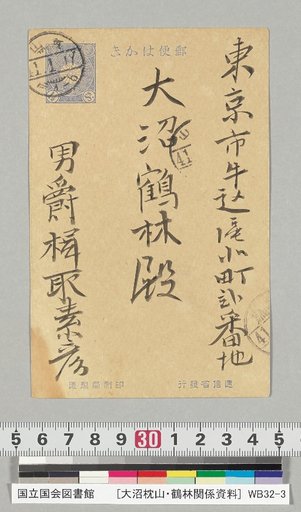 郵便はかき
東京市牛込區小町弐番地
大沼鶴林殿
男爵楫取素彦
逓信省發行
印刷局製造
5 6 7 8 9 30 1 2 3 4 5
国立国会図書館 [大沼枕山・鶴林関係資料] WB32-3